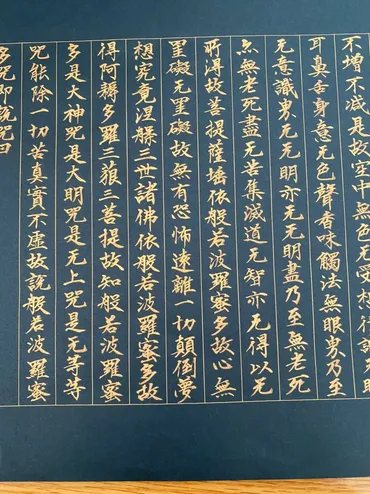 不增不减是故空中無色无受
耳鼻舌身意无色聲香味觸法無眼界乃至
无意識界无无明亦无无明盡乃至無老死
亦無老死盡无苦集滅道无智亦无得以无
所得故菩提薩埵依般若波羅蜜多故心無
罣礙无罣礙故無有恐怖遠離一切顛倒夢
想究竟涅槃三世諸佛依般若波羅蜜多故
得阿耨多羅三藐三菩提故知般若波羅蜜
多是大神咒是大明咒是无上咒是无等等
咒能除一切苦真實不虛故說般若波羅蜜
多咒即說咒曰